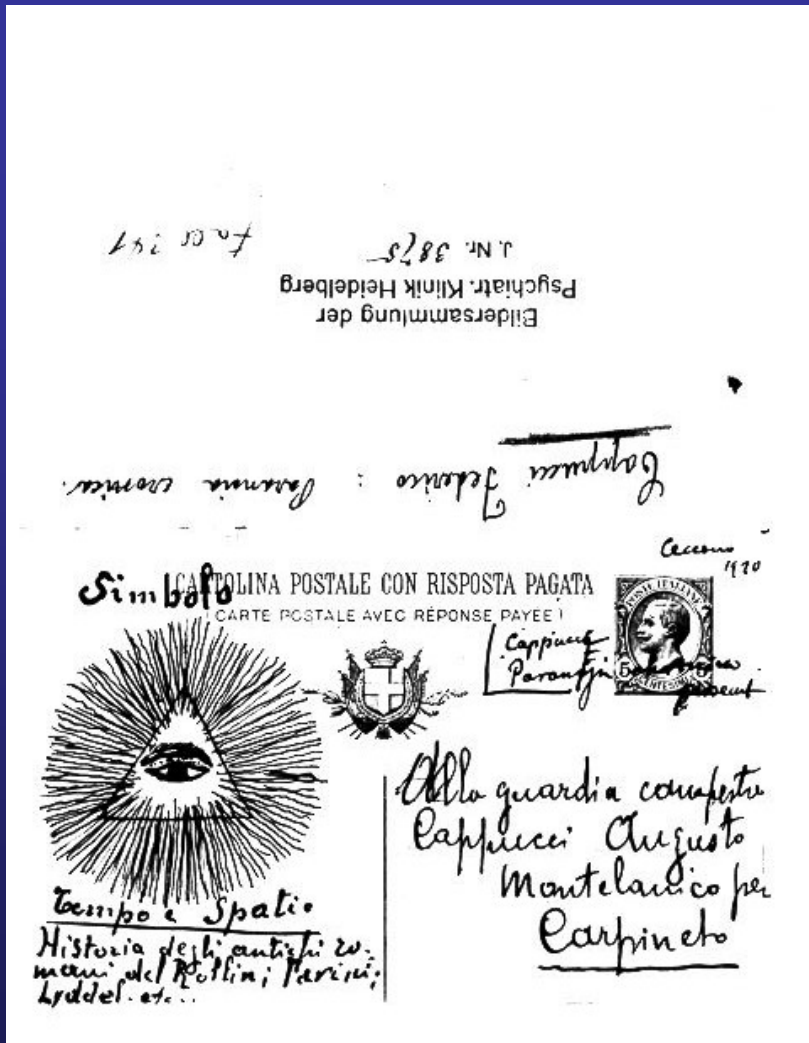 Bildersammlung der
Psychiatr. Klinik Heidelberg
J. Nr. 3875
Cappucci Federico : Paranoia cronica.
1920
Simbolo
CARTOLINA POSTALE CON RISPOSTA PAGATA
(CARTE POSTALE AVEC RÉPONSE PAYÉE)
POSTE ITALIANE
Cappucci
5 CENTESIMI 5
Alla guardia campestre
Cappucci Augusto
Montelanico per
Carpineto
Tempo e Spatio
Historia degli antichi ro-
mani del Rollini, Parini;
Lyddel. etc..